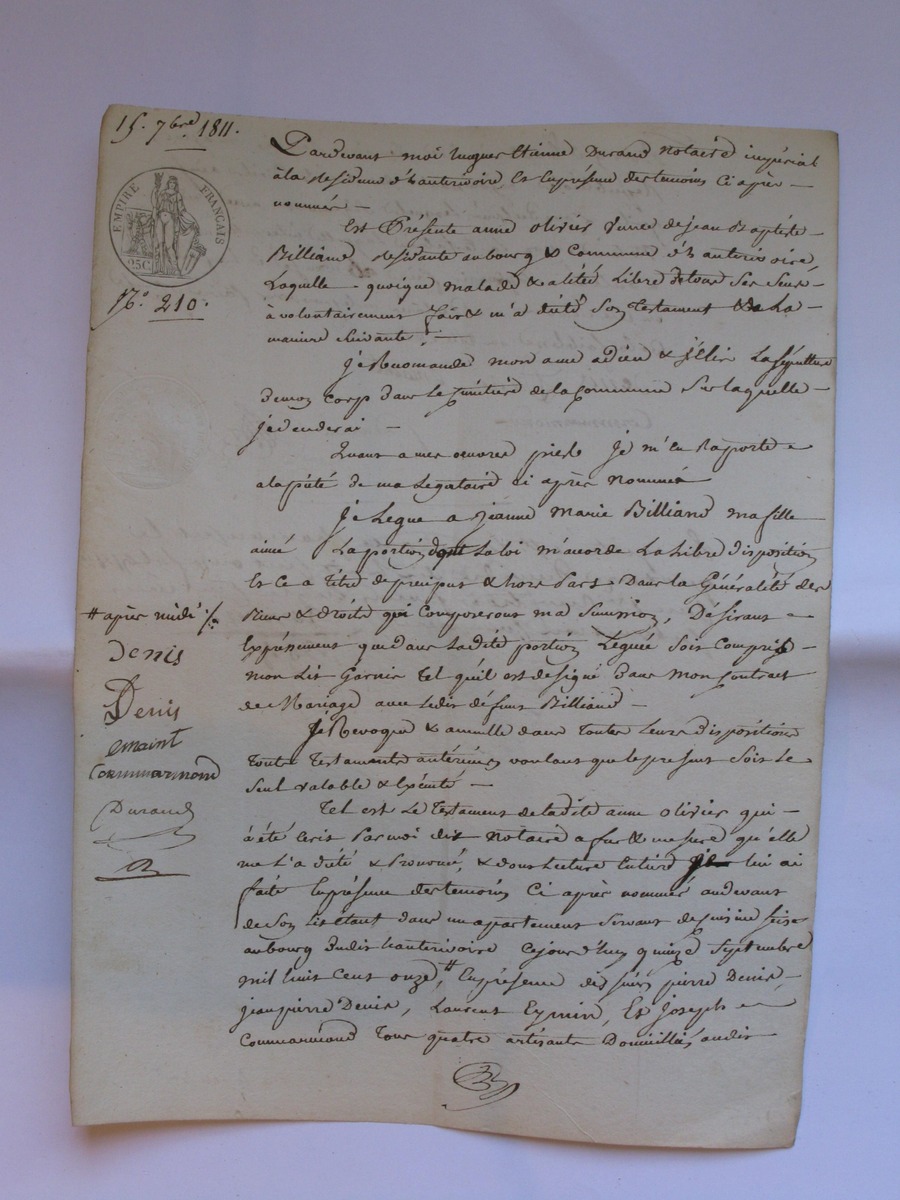 15. 7bre 1811.
EMPIRE FRANÇAIS
25C.
N.° 210.
Pardevant moi hugues Etienne Durand Notaire impérial
à la Residence d'hauterivoire, Et En présence des temoins Ci après
nommés
Est Présente anne olivier veuve de jean Baptiste
Billiand residante au bourg & Commune d'hauterivoire,
Laquelle quoique malade & alitée Libre de tous Ses Sens
à volontairement fait & m'a dicté Son Testament de La
maniere Suivante :
je Recomande mon ame a dieu & Elis La Sépulture
de mon Corp dans Le Cimetière de la Commune Sur laquelle
je decederai
Quant a mes oeuvres pies je m'en Raporte
a la piété de ma Legataire ci après Nommée
je Legue a jeanne Marie Billiand ma fille
ainée La portion dont La loi m'acorde La Libre disposition
Et Ce a titre de preciput & hors Part Dans La Généralité des
Biens & droits qui Composeront ma Succession, Désirant
Expressement que dans La dite portion Leguée Soit Compris
mon Lit Garnis Tel qu'il est designé Dans Mon Contract
de Mariage avec Ledit défunt Billiand
je Revoque & annulle dans toutes Leurs dispositions
toutes Testaments antérieurs voulant que le present Soit Le
Seul valable & Exécuté
Tel est Le Testament de ladite anne olivier qui
à été Ecrit Par moi dit Notaire a fur & mesure qu'elle
me L'a dicté & Prononcé, & dont Lecture Entiere lui ai
faite En présence des temoins Ci après nommés au devant
de Son Lit Etant dans un apartement Servant de cuisine Sise
au bourg dudit hauterivoire Cejourd'huy quinze Septembre
mil huit Cent onze #, En présence des Sieurs pierre Denis,
jean pierre Denis, Laurent Eymin, Et Joseph
Commarmond Tous quatre artisants Domicilliés audit
# après midi
Denis
Denis
emaint
Commarmond
Durand